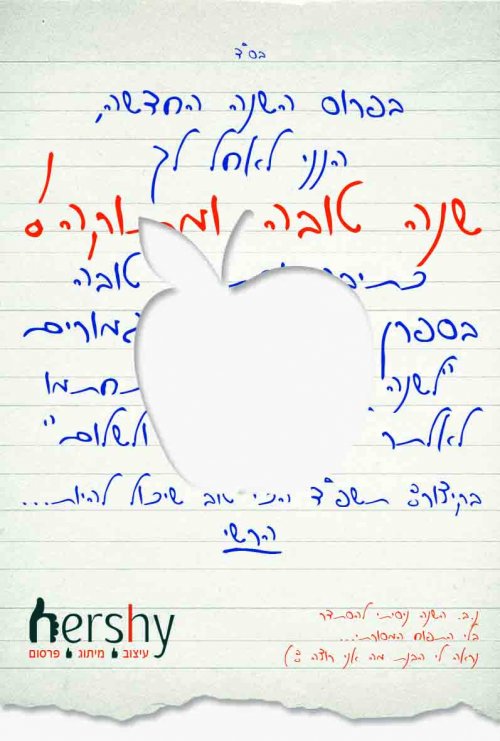 בס"ד
בפרוס השנה החדשה,
הנני לאחל לך
שנה טובה ומתוקה!
טובה
בספרן גמורים
"לשנה תחתמו
לאלתר ולשלום"
בקיצור: תשפ"ד הכי טוב שיכול להיות...
הרשי
hershy
עיצוב מיתוג פרסום
נ.ב. השנה ניסיתי להסתדר
בלי התפוח המסורתי...
נראה לי הבנת מה אני רוצה :)